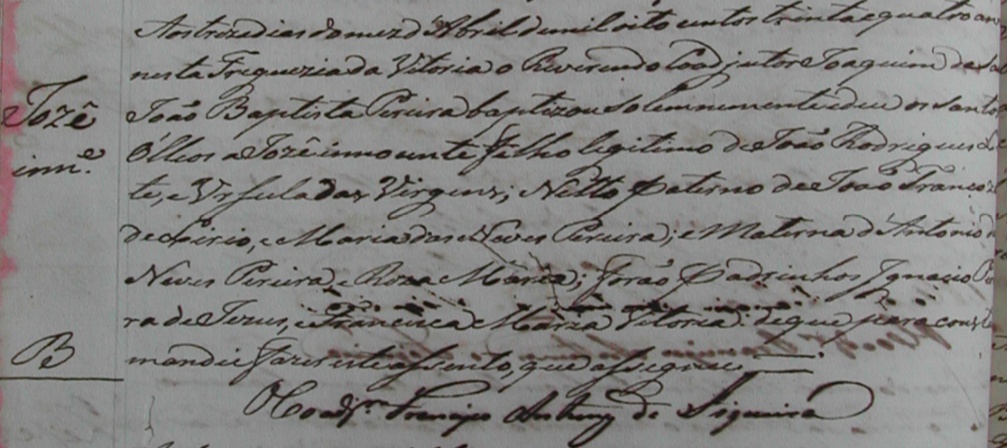 Aos treze dias do mez d'Abril de mil oito centos trinta e quatro an
nesta Freguezia da Vitoria o Reverendo Coadjutor Joaquim de
Jozê João Baptista Pereira baptizou solemnemente e deu os Santos
inn.e Óleos a Jozê innocente filho legitimo de João Rodrigues
te, e Ursula das Virgens; Netto Paterno de João Franco
de Lirio, e Maria das Neves Pereira; e Materna d'Antonio
Neves Pereira, e Roza Maria; forão Padrinhos Ignacio
ra de Jezus, e Francisca Maria Vitoria: de que para cons
B mandei fazer este assento, que assignei
O Coadj.r Francisco Antonio de Siqueira